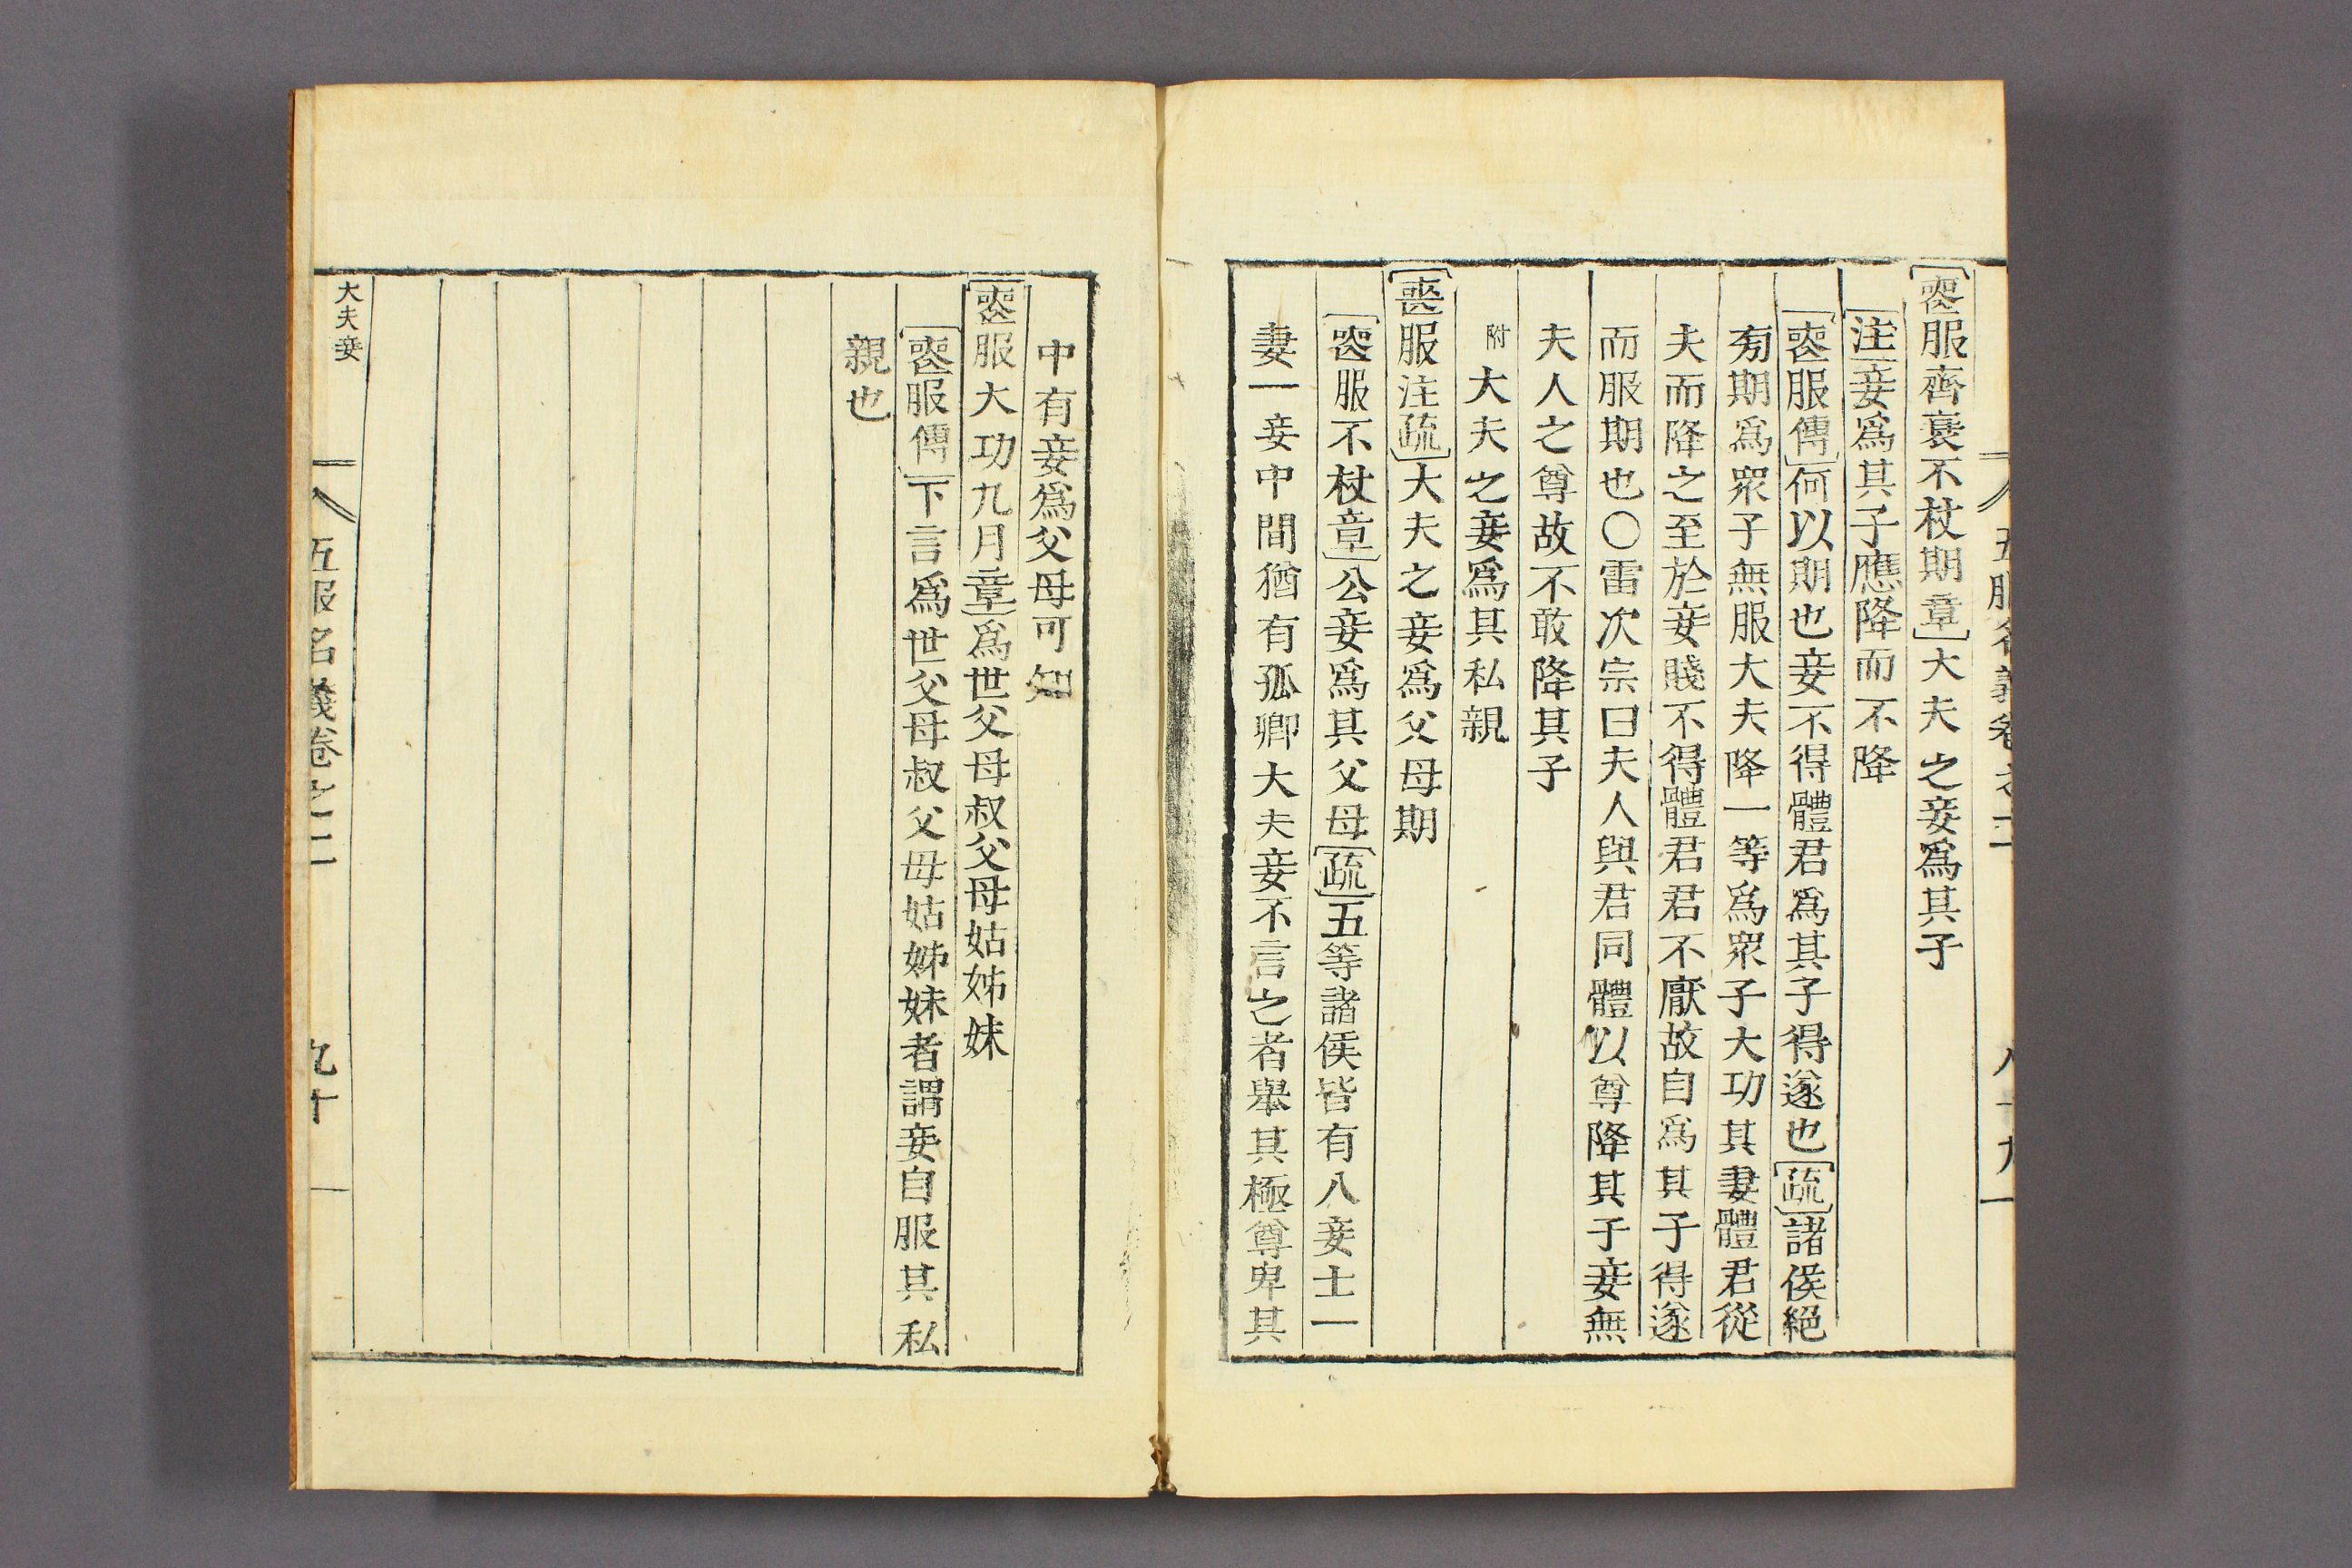 五服名義卷之二
八十九
喪服齊衰不杖期章大夫之妾爲其子
注妾爲其子應降而不降
喪服傳何以期也妾不得體君爲其子得遂也疏諸侯絕
旁期爲衆子無服大夫降一等爲衆子大功其妻體君從
夫而降之至於妾賤不得體君君不厭故自爲其子得遂
而服期也〇雷次宗曰夫人與君同體以尊降其子妾無
夫人之尊故不敢降其子
附大夫之妾爲其私親
喪服注疏大夫之妾爲父母期
喪服不杖章公妾爲其父母疏五等諸侯皆有八妾士一
妻一妾中間猶有孤卿大夫妾不言之者舉其極尊卑其
中有妾爲父母可知
喪服大功九月章爲世父母叔父母姑姊妹
喪服傳下言爲世父母叔父母姑姊妹者謂妾自服其私
親也
大夫妾
五服名義卷之二
九十